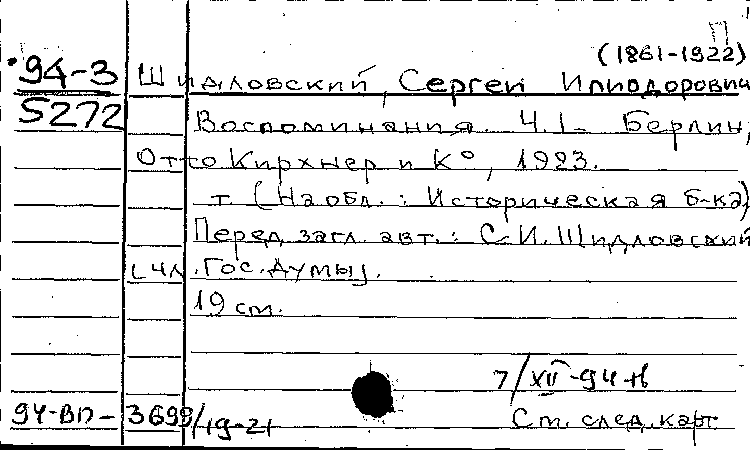 П
(1861-1922)
94-3 Шидловский, Сергей Илиодорович
5272
Воспоминания. Ч.I. Берлин,
Отто Кирхнер и К°, 1923.
т. (На обл.: Историческая б-ка)
Перед загл. авт.: С.И. Шидловский
[чл. Гос. Думы].
19 см.
7/XII-94 н
94-ВП-3698/19-21 См. след. карт.